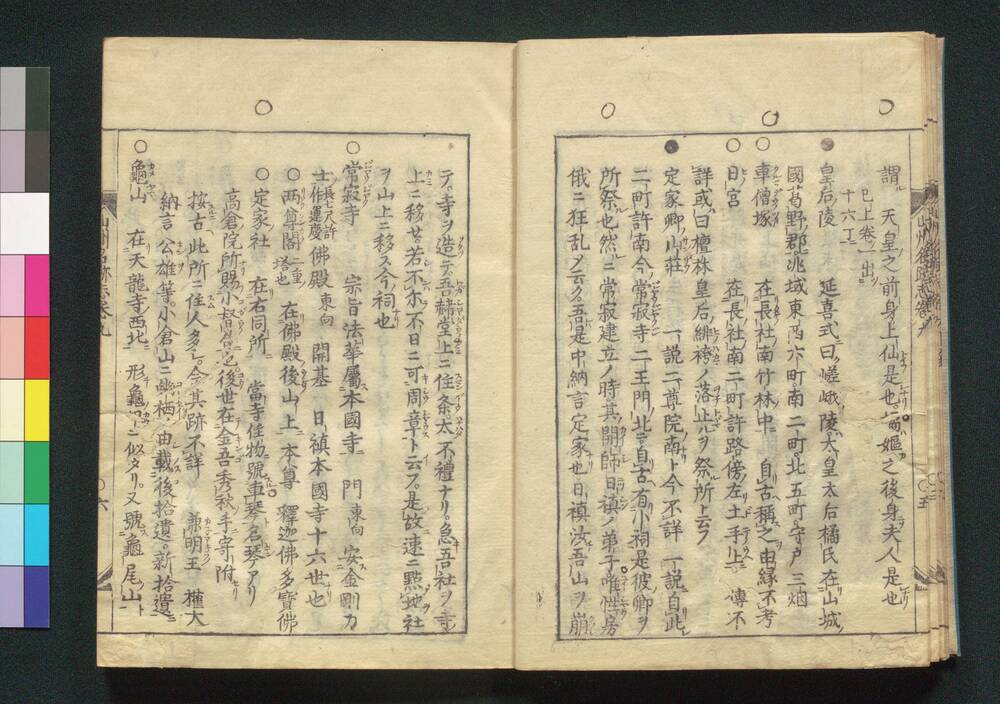 謂 天皇之前身上仙是也 嫗之後身夫人是也
已上卷一出
十六丁
皇后陵 延喜式曰嵯峨陵太皇太后橘氏在山城
國葛野郡兆域東西六町南二町北五町守戸三烟
車僧塚 在長社南竹林中 自古稱之由縁不考
日宮 在長社南二町許路傍左土手上 傳不
詳或曰檀林皇后緋袴ノ落止ルヲ祭所ト云フ
定家卿山莊 一説二尊院南ト今不詳 一説自此
二町許南今常寂寺二王門ノ北ニ自古有小祠是彼卿ヲ
所祭也然ニ常寂建立ノ時其開師日禎ノ弟子唯性房
俄ニ狂乱メ云ク吾是中納言定家也日禎汝吾山ヲ崩
テ寺ヲ造テ吾赫堂上ニ住条太不禮ナリ急吾社ヲ寺
上ニ移セ若不尓不日ニ可周章ト云フ是故速ニ點地社
ヲ山上ニ移ス今祠也
常寂寺 宗旨法華屬本國寺 門東向 安金剛力
士長七尺許作運慶 佛殿東向 開基 日禎本國寺十六世也
両尊閣二重塔也 在佛殿後山上 本尊 釋迦佛多寶佛
定家社 在右同所 當寺住物號車琴名琴アリ
高倉院所賜小督局也後世在金吾秀秋手寄附
按古此所ニ住人多シ今其跡不詳 兼明王 權大
納言公雄等小倉山ニ幽栖ノ由載後拾遺新拾遺
龜山 在天龍寺西北 形龜ニ似タリ又號龜尾山
山州名跡志卷九
五
六